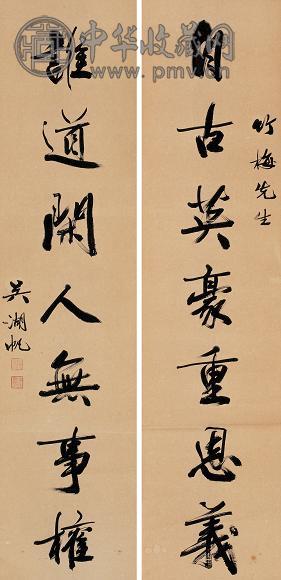 中华收藏网
www.pmv.cn
竹梅先生
自古英豪重恩義
誰道閑人無事權
吳湖帆